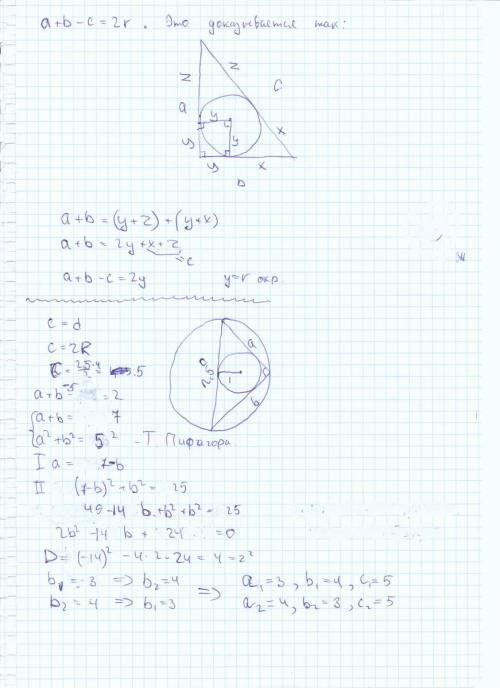 a+b-c=2r. Это доказывается так:
z
z
a
c
y
y
y
x
y
x
b
a+b=(y+z)+(y+x)
a+b=2y+x+z
=c
a+b-c=2y y=r окр.
c=d
c=2R
a
2,5
1
c
b
a+b-5=2
a+b=7
a²+b²=5² - Т. Пифагора
I a=7-b
II (7-b)²+b²=25
49-14b+b²+b²=25
2b²-14b+24=0
D=(-14)²-4·2·24=4=2²
b₁=3 => b₂=4 => a₁=3, b₁=4, c₁=5
b₂=4 => b₁=3 a₂=4, b₂=3, c₂=5